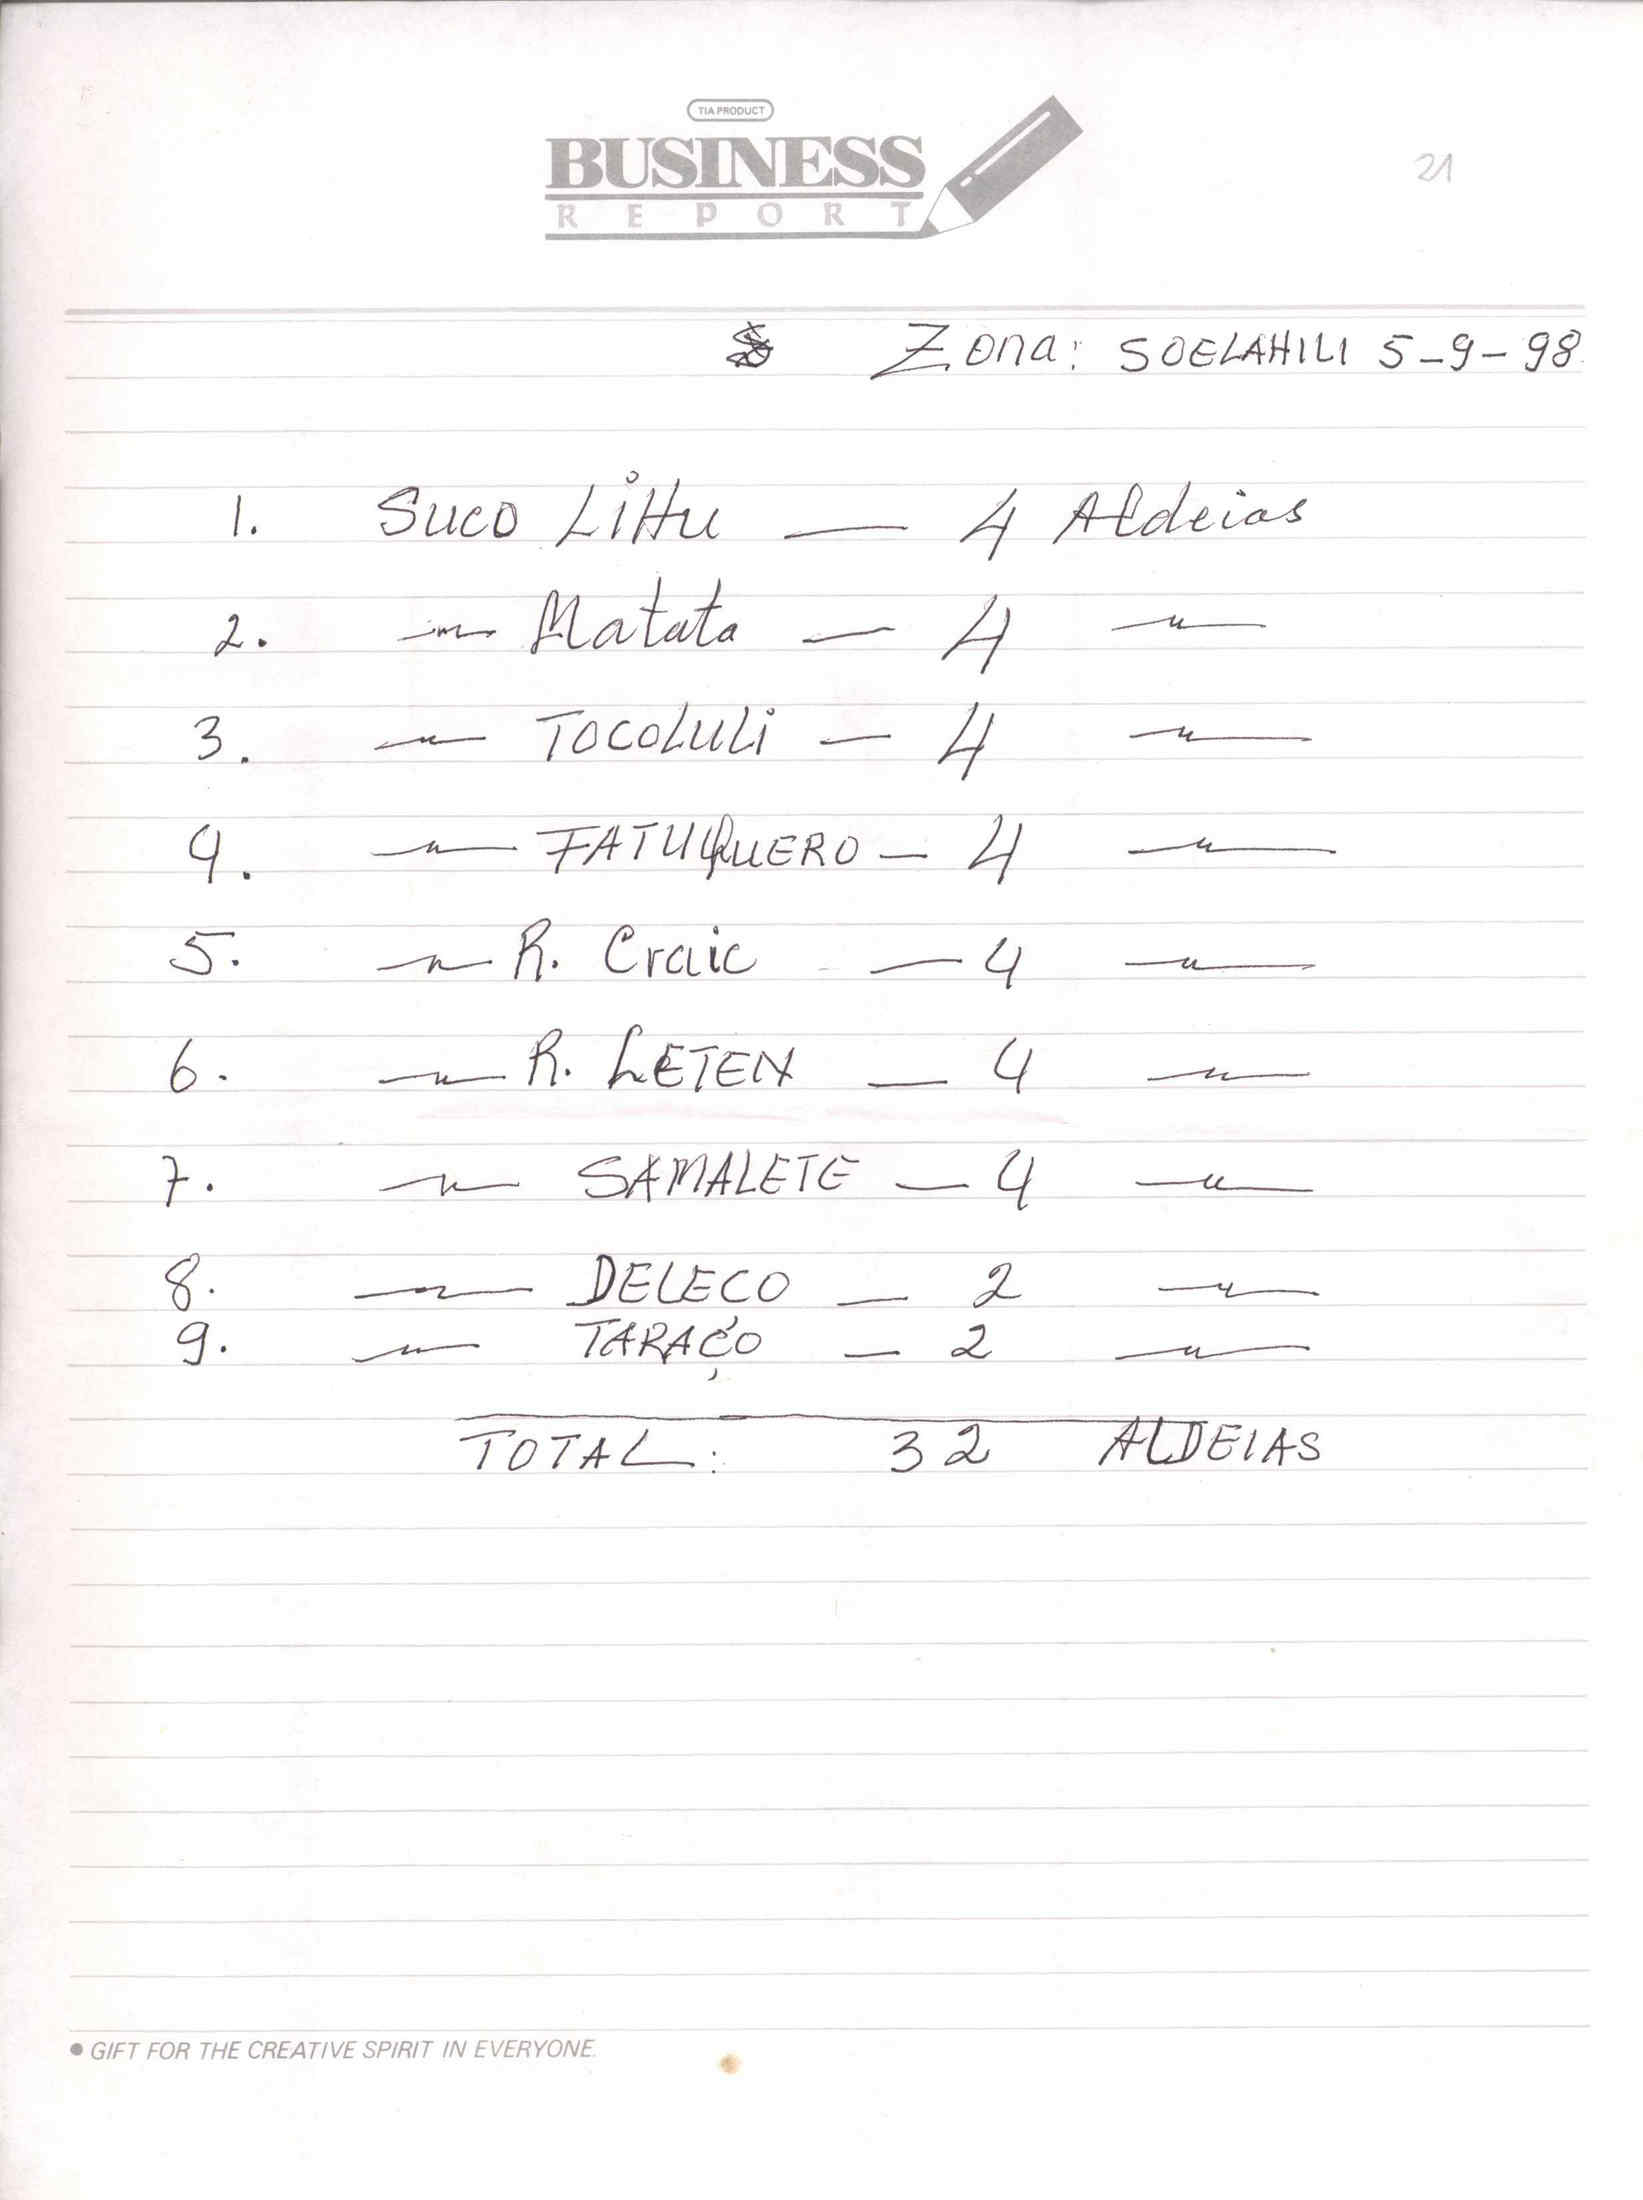 TIA PRODUCT
BUSINESS
REPORT
21
Zona: SOELAHILI 5-9-98
1. Suco Littu — 4 Aldeias
2. —„— Matata — 4 —„—
3. —„— TOCOLULi — 4 —„—
4. —„— FATUQUERO — 4 —„—
5. —„— R. Craic — 4 —„—
6. —„— R. LETEN — 4 —„—
7. —„— SAMALETE — 4 —„—
8. —„— DELECO — 2 —„—
9. —„— TARAÇO — 2 —„—
TOTAL: 32 ALDEIAS
• GIFT FOR THE CREATIVE SPIRIT IN EVERYONE.